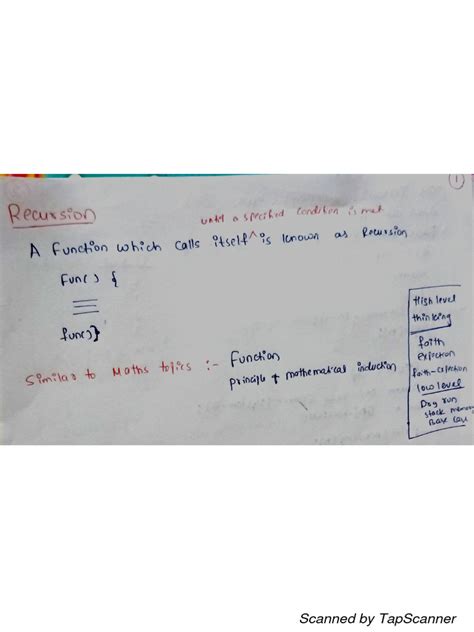 1
Recursion
until a specified condition is met
A function which calls itself ^ is known as Recursion
fun() {
fun()}
Similar to Maths topics :- Function
principle + mathematical induction
High level
thinking
faith
expection
faith-expection
low level
Dry run
stack memory
Base case
Scanned by TapScanner